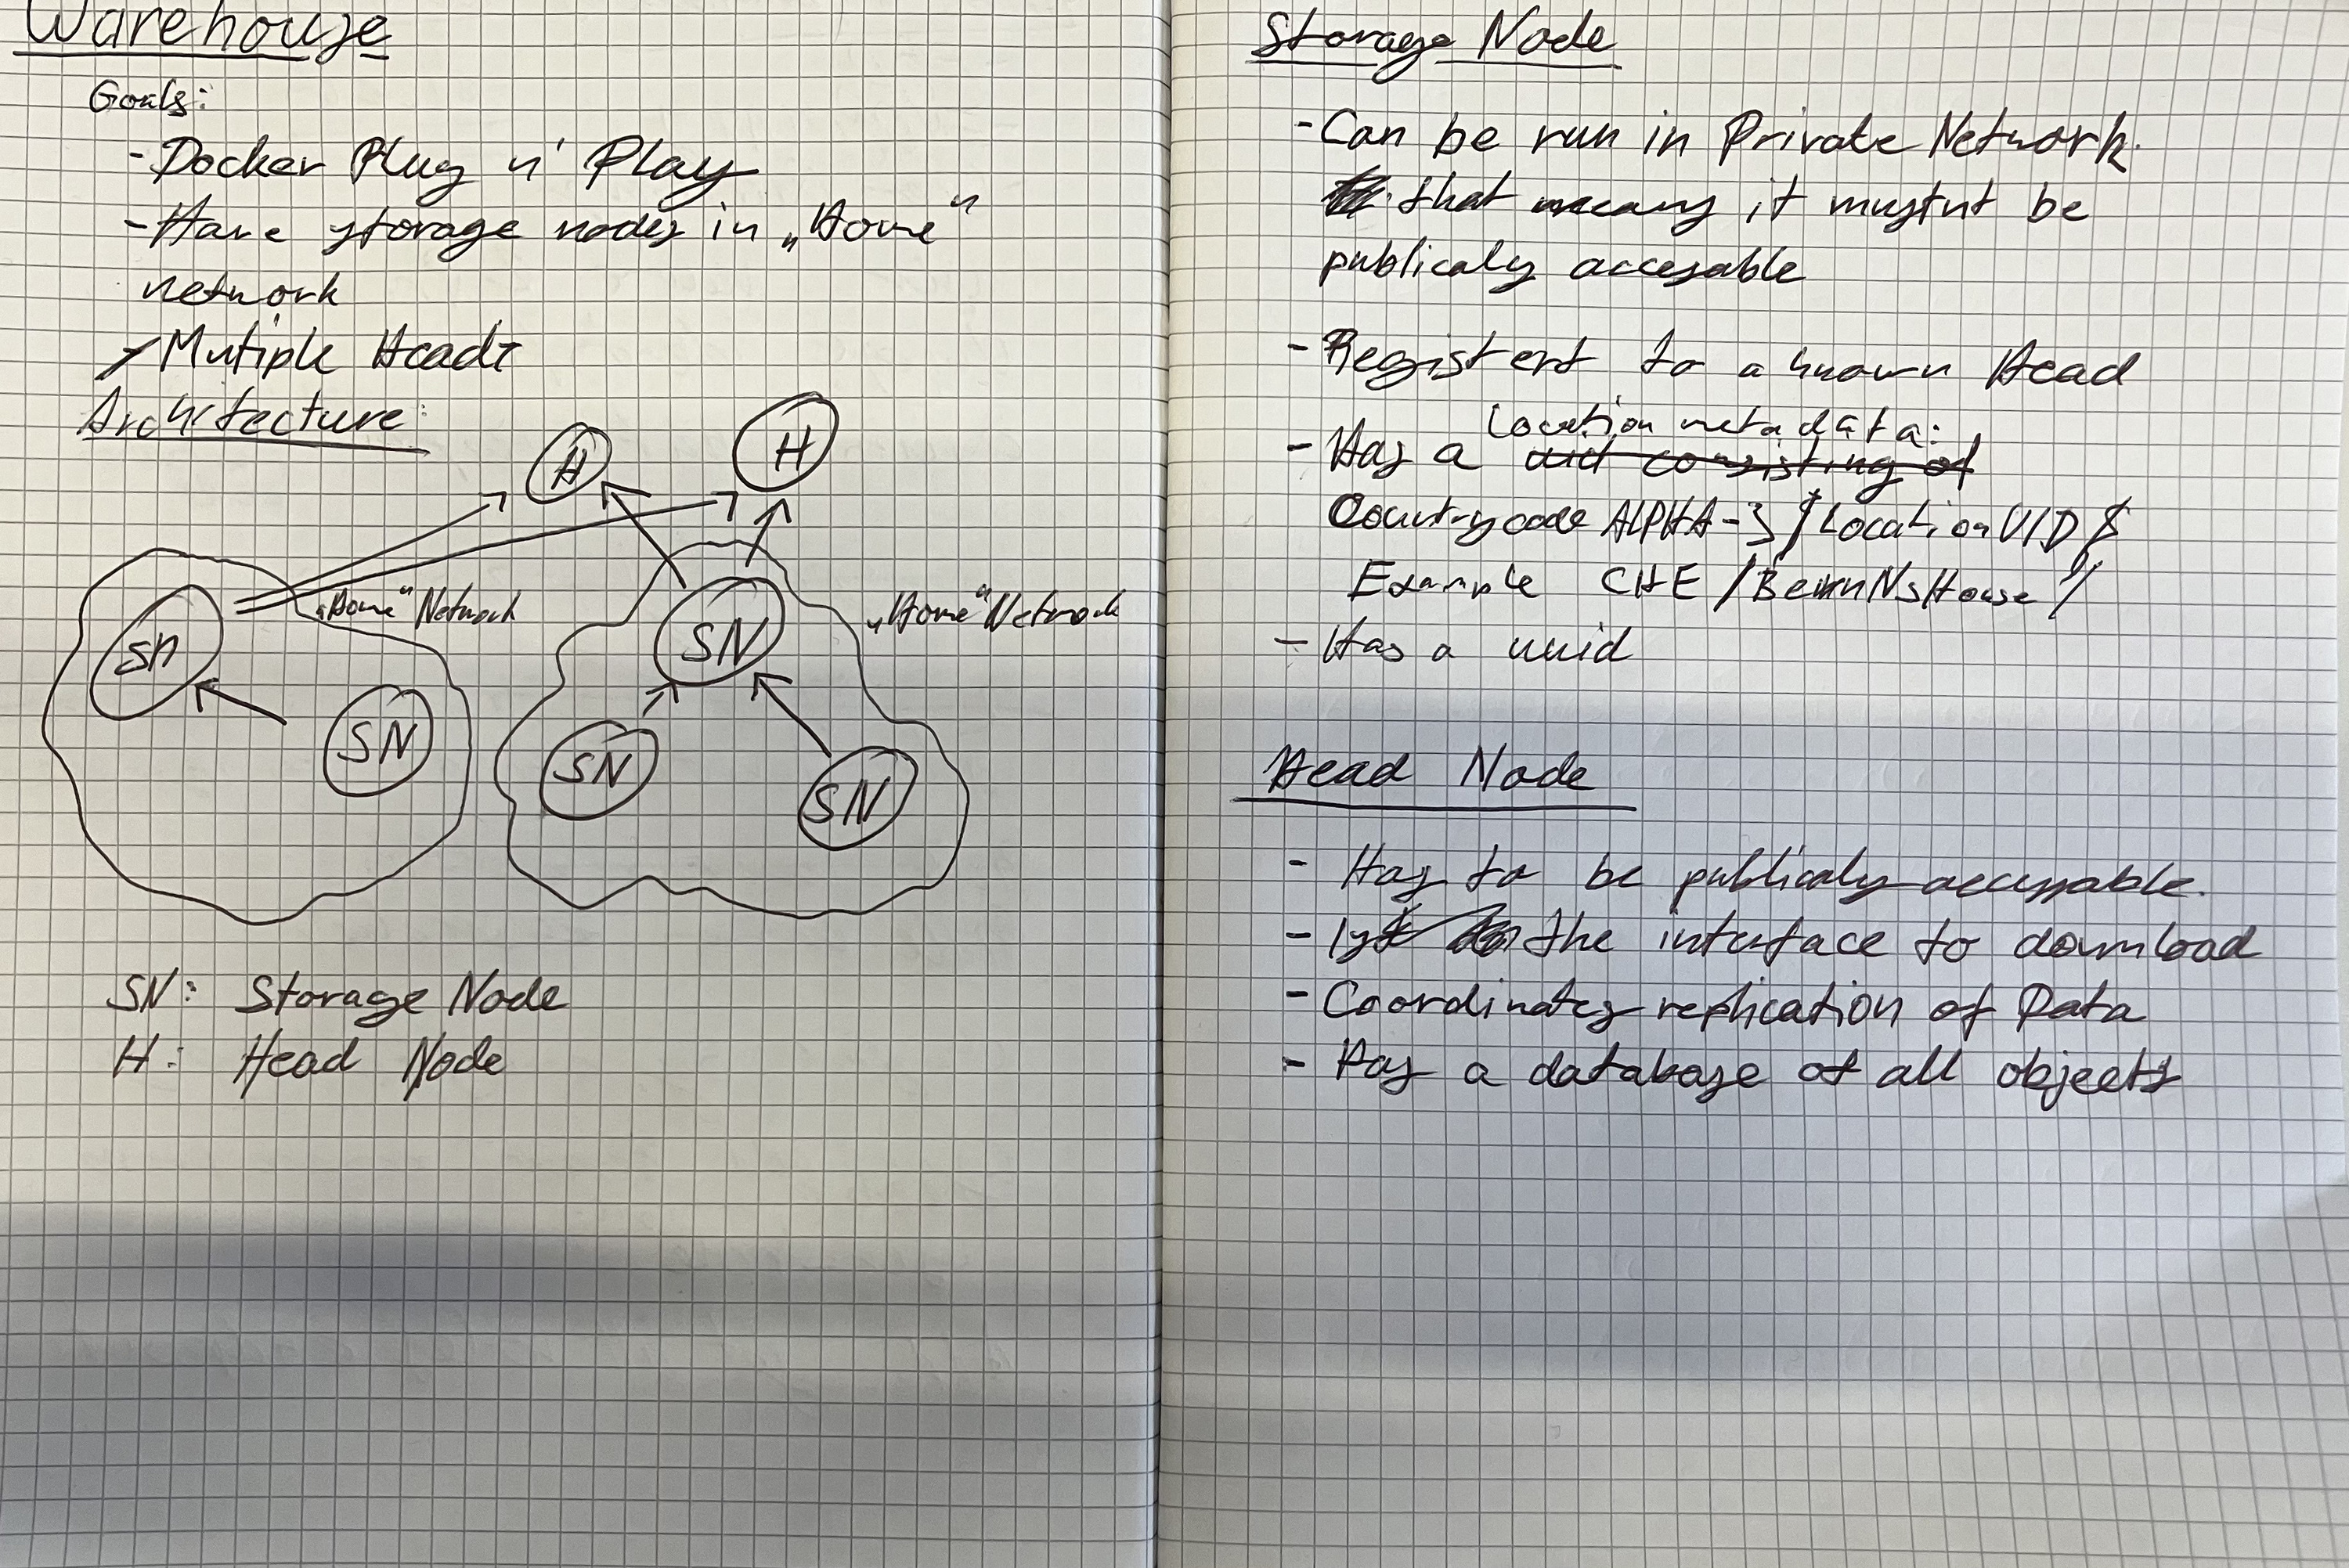 Warehouse
Goals:
- Docker Plug n' Play
- Have storage nodes in „Home“
network
- Mutiple Heads
Architecture:
H
H
SN
„Home“ Network
SN
SN
„Home“ Network
SN
SN
SN: Storage Node
H: Head Node
Storage Node
- Can be run in Private Network.
that means it mustnt be
publicaly accesable
- Registert to a known Head
Location metadata:
- Has a uuid consisting of
Countrycode ALPHA-3 / Location UID
Example CHE /
- Has a uuid
Head Node
- Has to be publicaly accessable.
- Is the interface to download
- Coordinates replication of Data
- Has a database of all objects